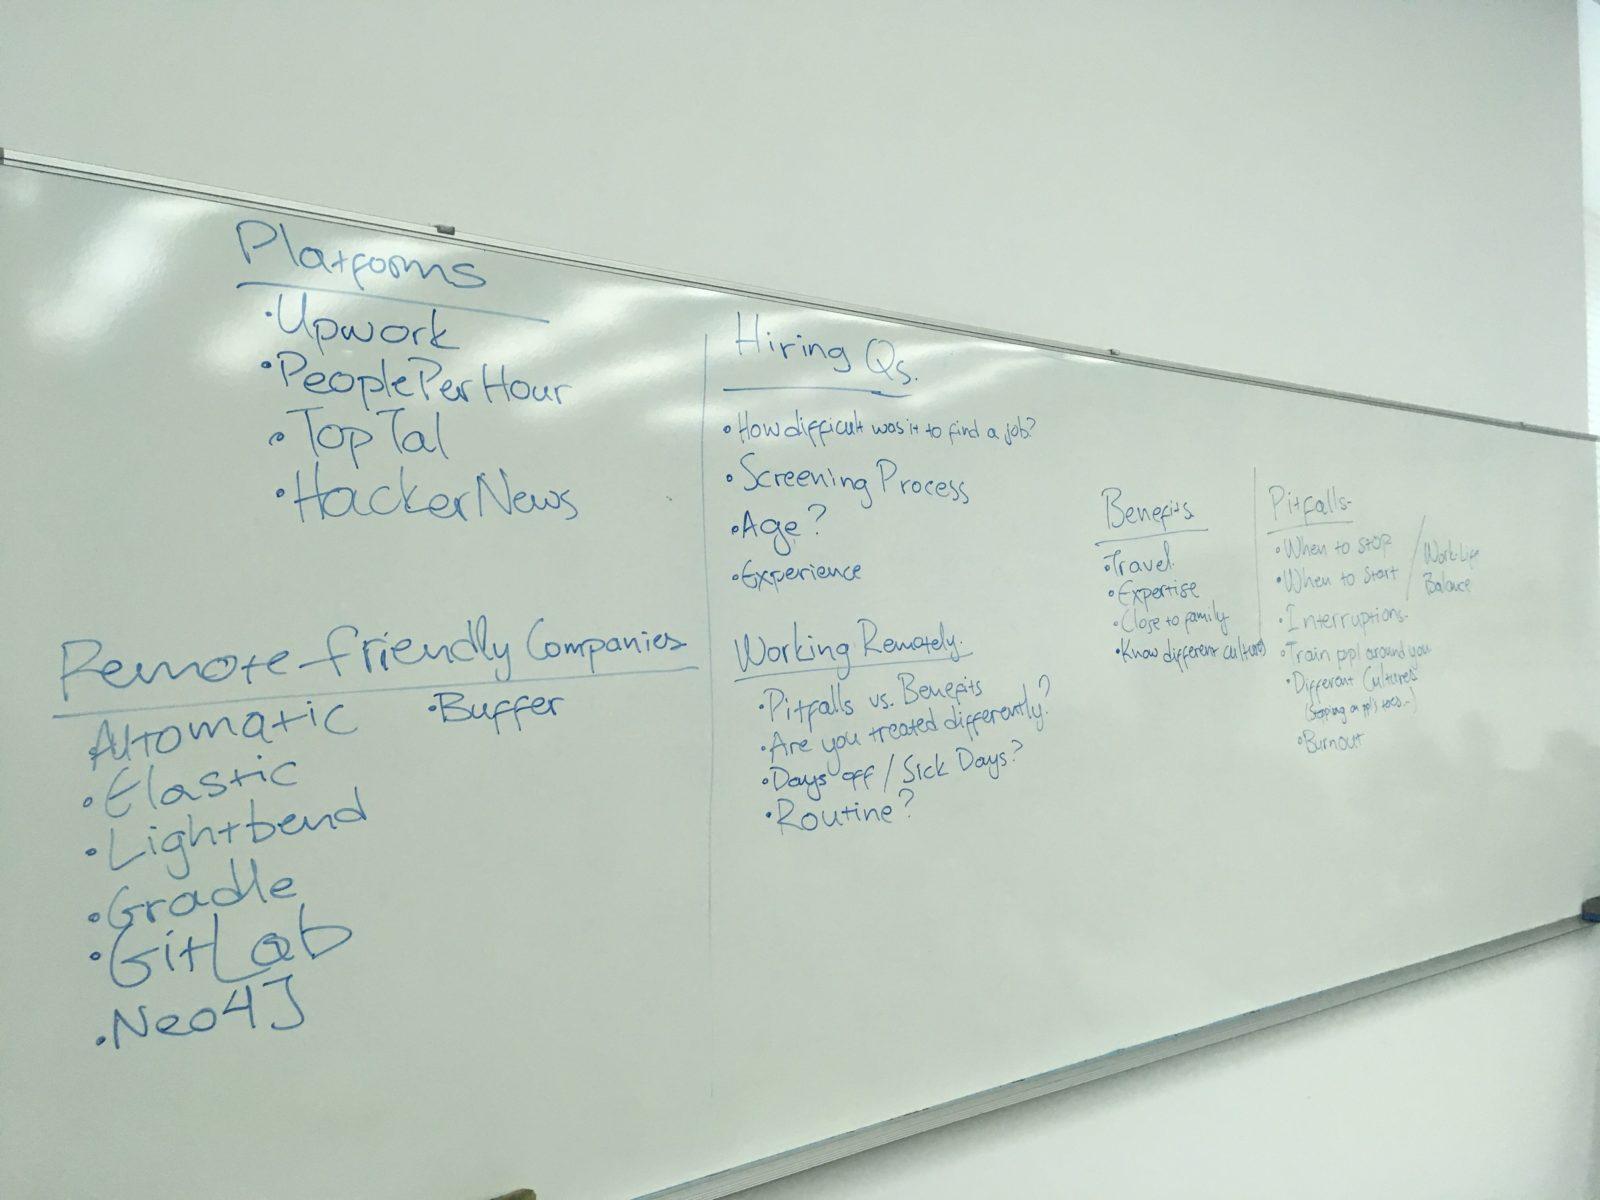 Platforms
• Upwork
• PeoplePerHour
• TopTal
• HackerNews
Remote-friendly Companies
Automatic
• Elastic
• Lightbend
• Gradle
• GitLab
• Neo4J
• Buffer
Hiring Qs.
• How difficult was it to find a job?
• Screening Process
• Age?
• Experience
Working Remotely.
• Pitfalls vs. Benefits
• Are you treated differently?
• Days off / Sick Days?
• Routine?
Benefits
• Travel
• Expertise
• Close to family
• Know different cultures
Pitfalls
• When to stop
• When to start
/ Work-Life
Balance
• Interruptions
• Train ppl around you
• Different Cultures
(Stepping on ppl's toes...)
• Burnout